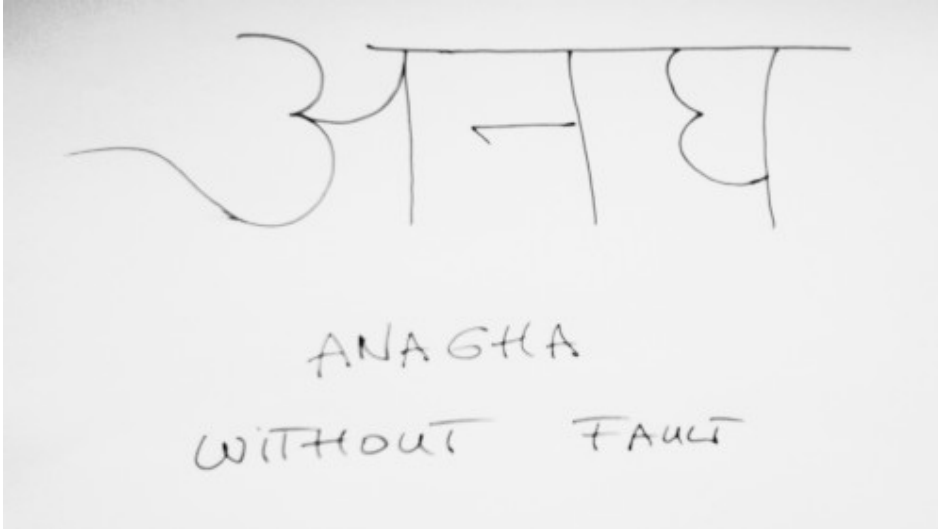 अनघ
ANAGHA
WITHOUT FAULT